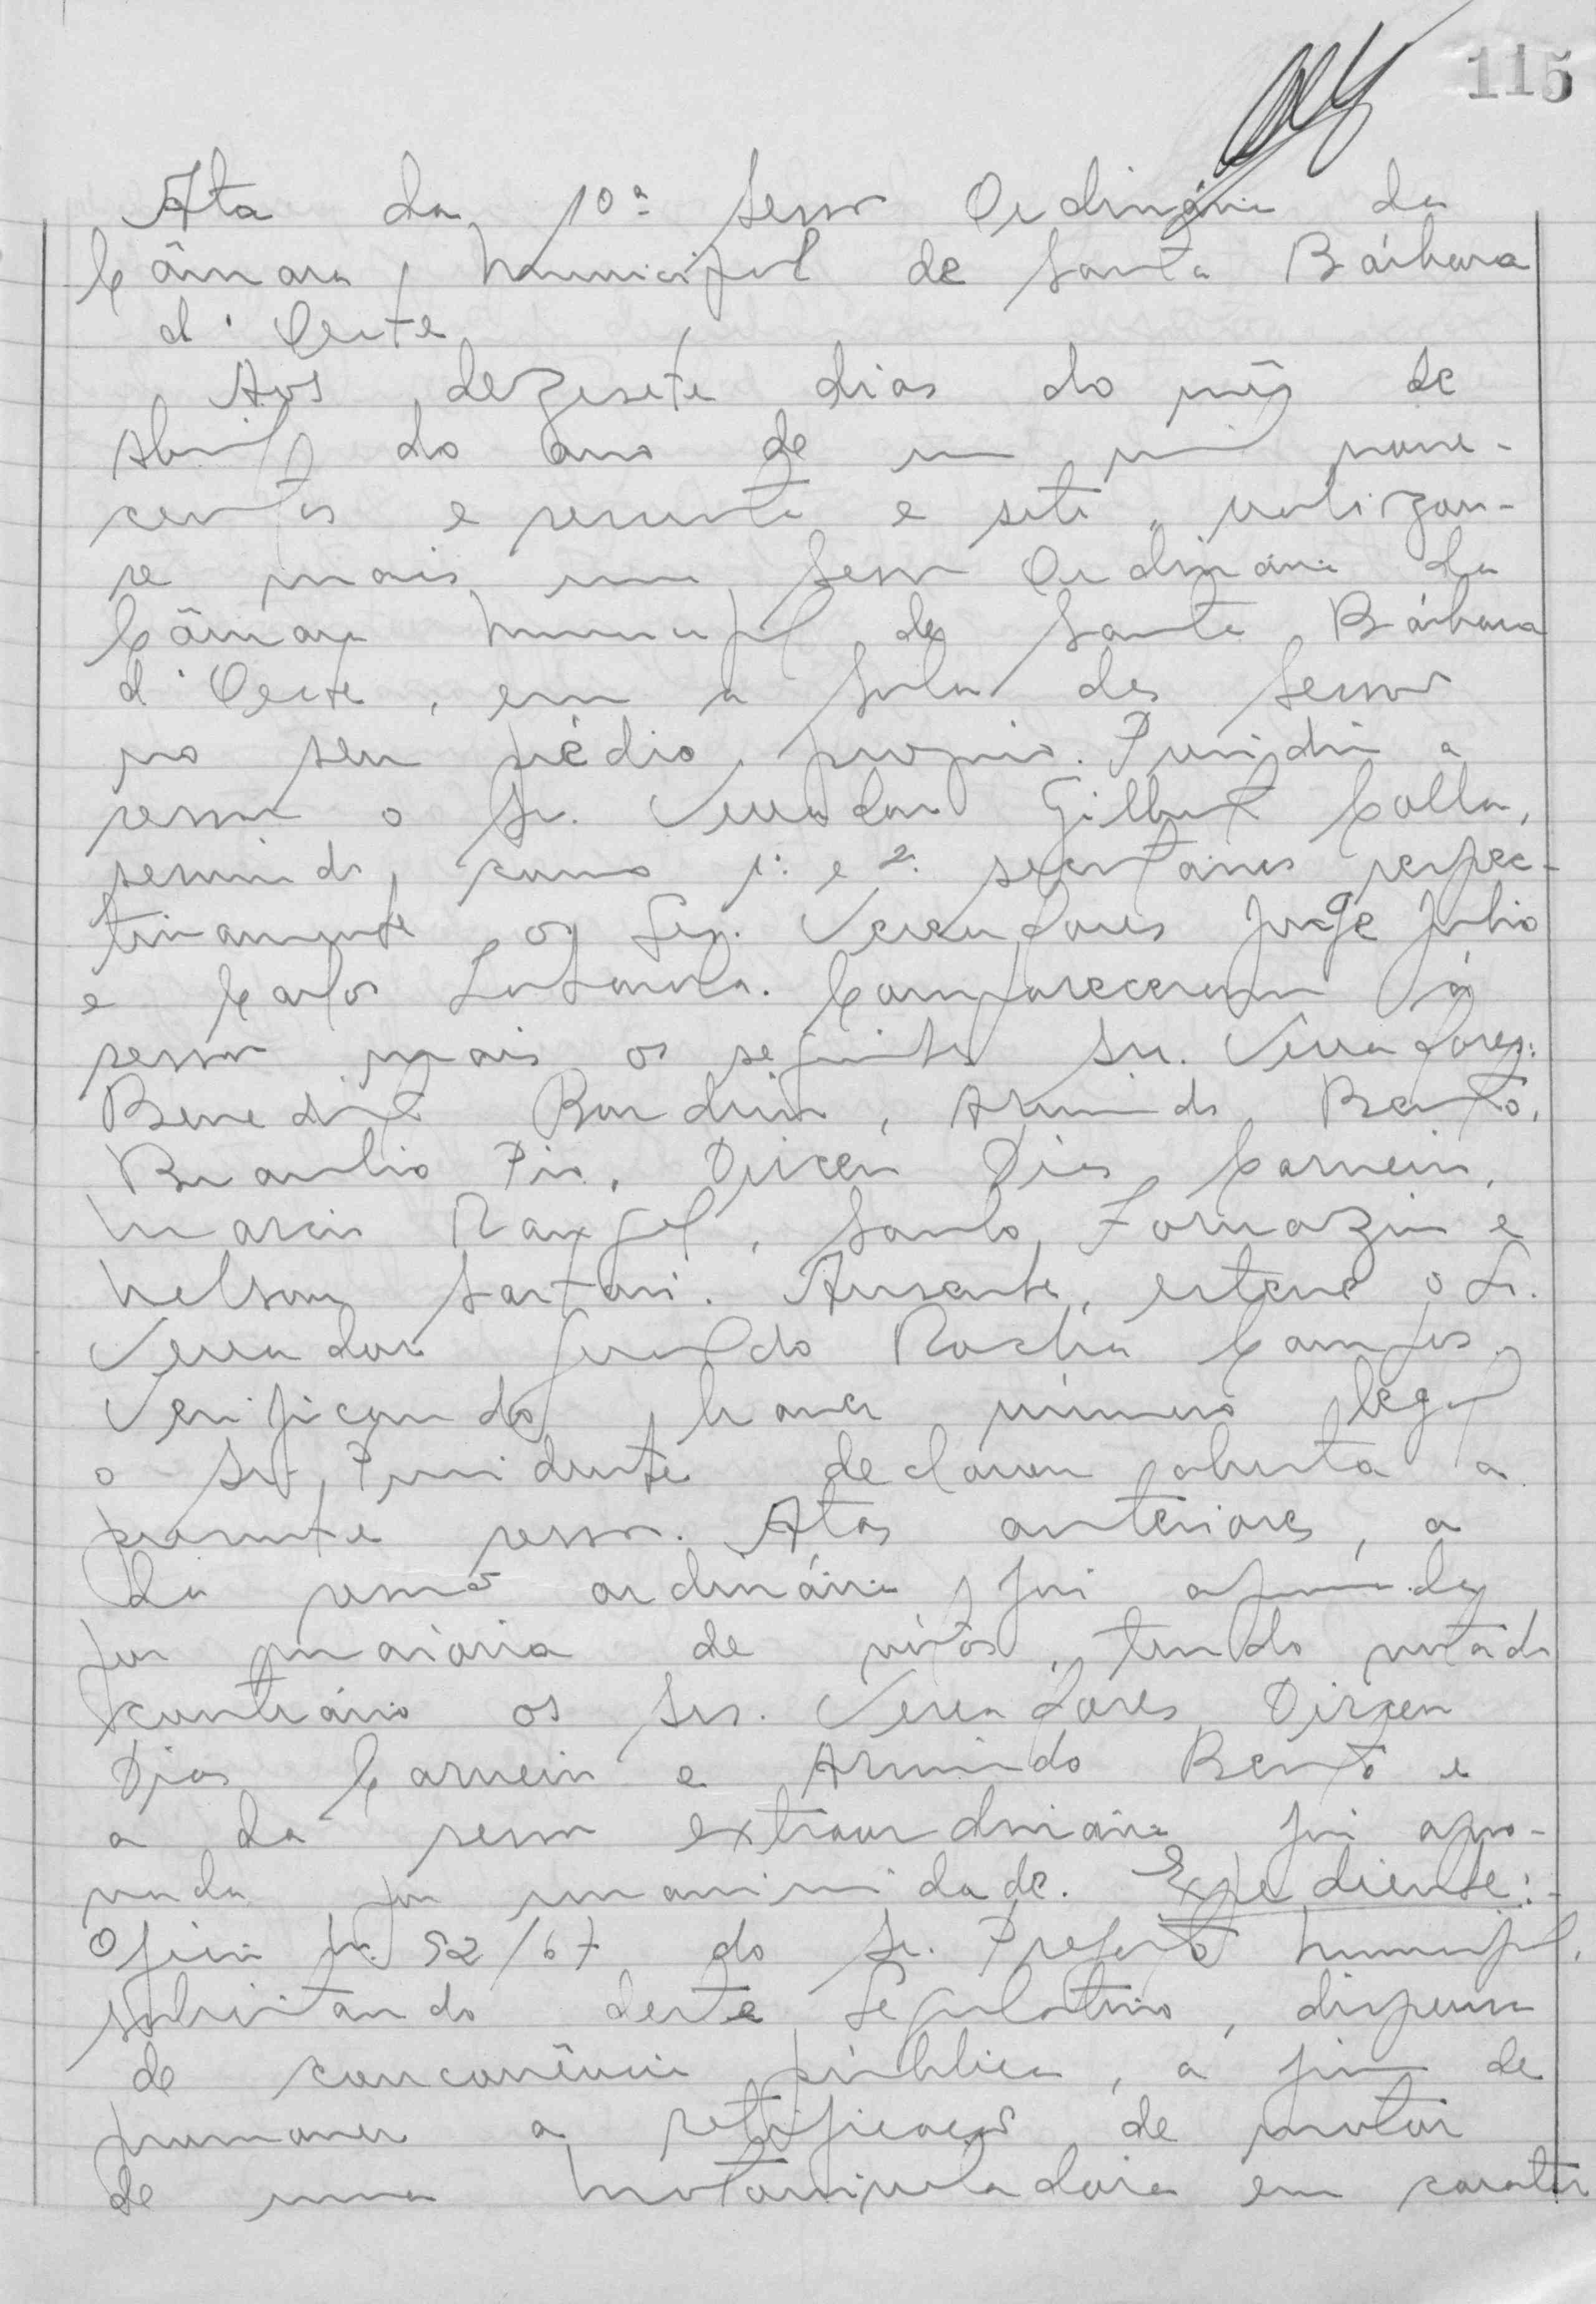 115
Ata da 10ª Sessão Ordinária da
Câmara Municipal de Santa Bárbara
d'Oeste
Aos dezesete dias do mês de
Abril do ano de um mil nove-
centos e sessenta e sete, realizou-
se mais uma Sessão Ordinária da
Câmara Municipal de Santa Bárbara
d'Oeste, em a Sala das Sessões
no seu prédio proprio. Presidiu a
sessão o Sr. Vereador Gilberto Colla,
servindo como 1º e 2º secretários respec-
tivamente os Srs. Vereadores Jorge Julio
e Carlos. Compareceram à
sessão mais os seguintes Srs. Vereadores:
Benedito, Armindo Bento,
Braulio Pio, Dirceu Dias Carneiro,
Marcio Rangel, Santo Fornazin e
Nelson Sartori. Ausente, esteve o Sr.
Vereador Geraldo Rocha Campos.
Verificando haver número legal
o Sr. Presidente declarou aberta a
presente sessão. Atas anteriores, a
da sessão ordinária foi aprovada
por maioria de votos, tendo votado
contrário os Srs. Vereadores Dirceu
Dias Carneiro e Armindo Bento e
a da sessão extraordinária foi apro-
vada por unanimidade. Expediente:-
Ofício nº 52/67 do Sr. Prefeito Municipal,
solicitando deste Legislativo, dispensa
de concorrência pública, a fim de
promover a retificação de motor
de uma Motoniveladora em carater